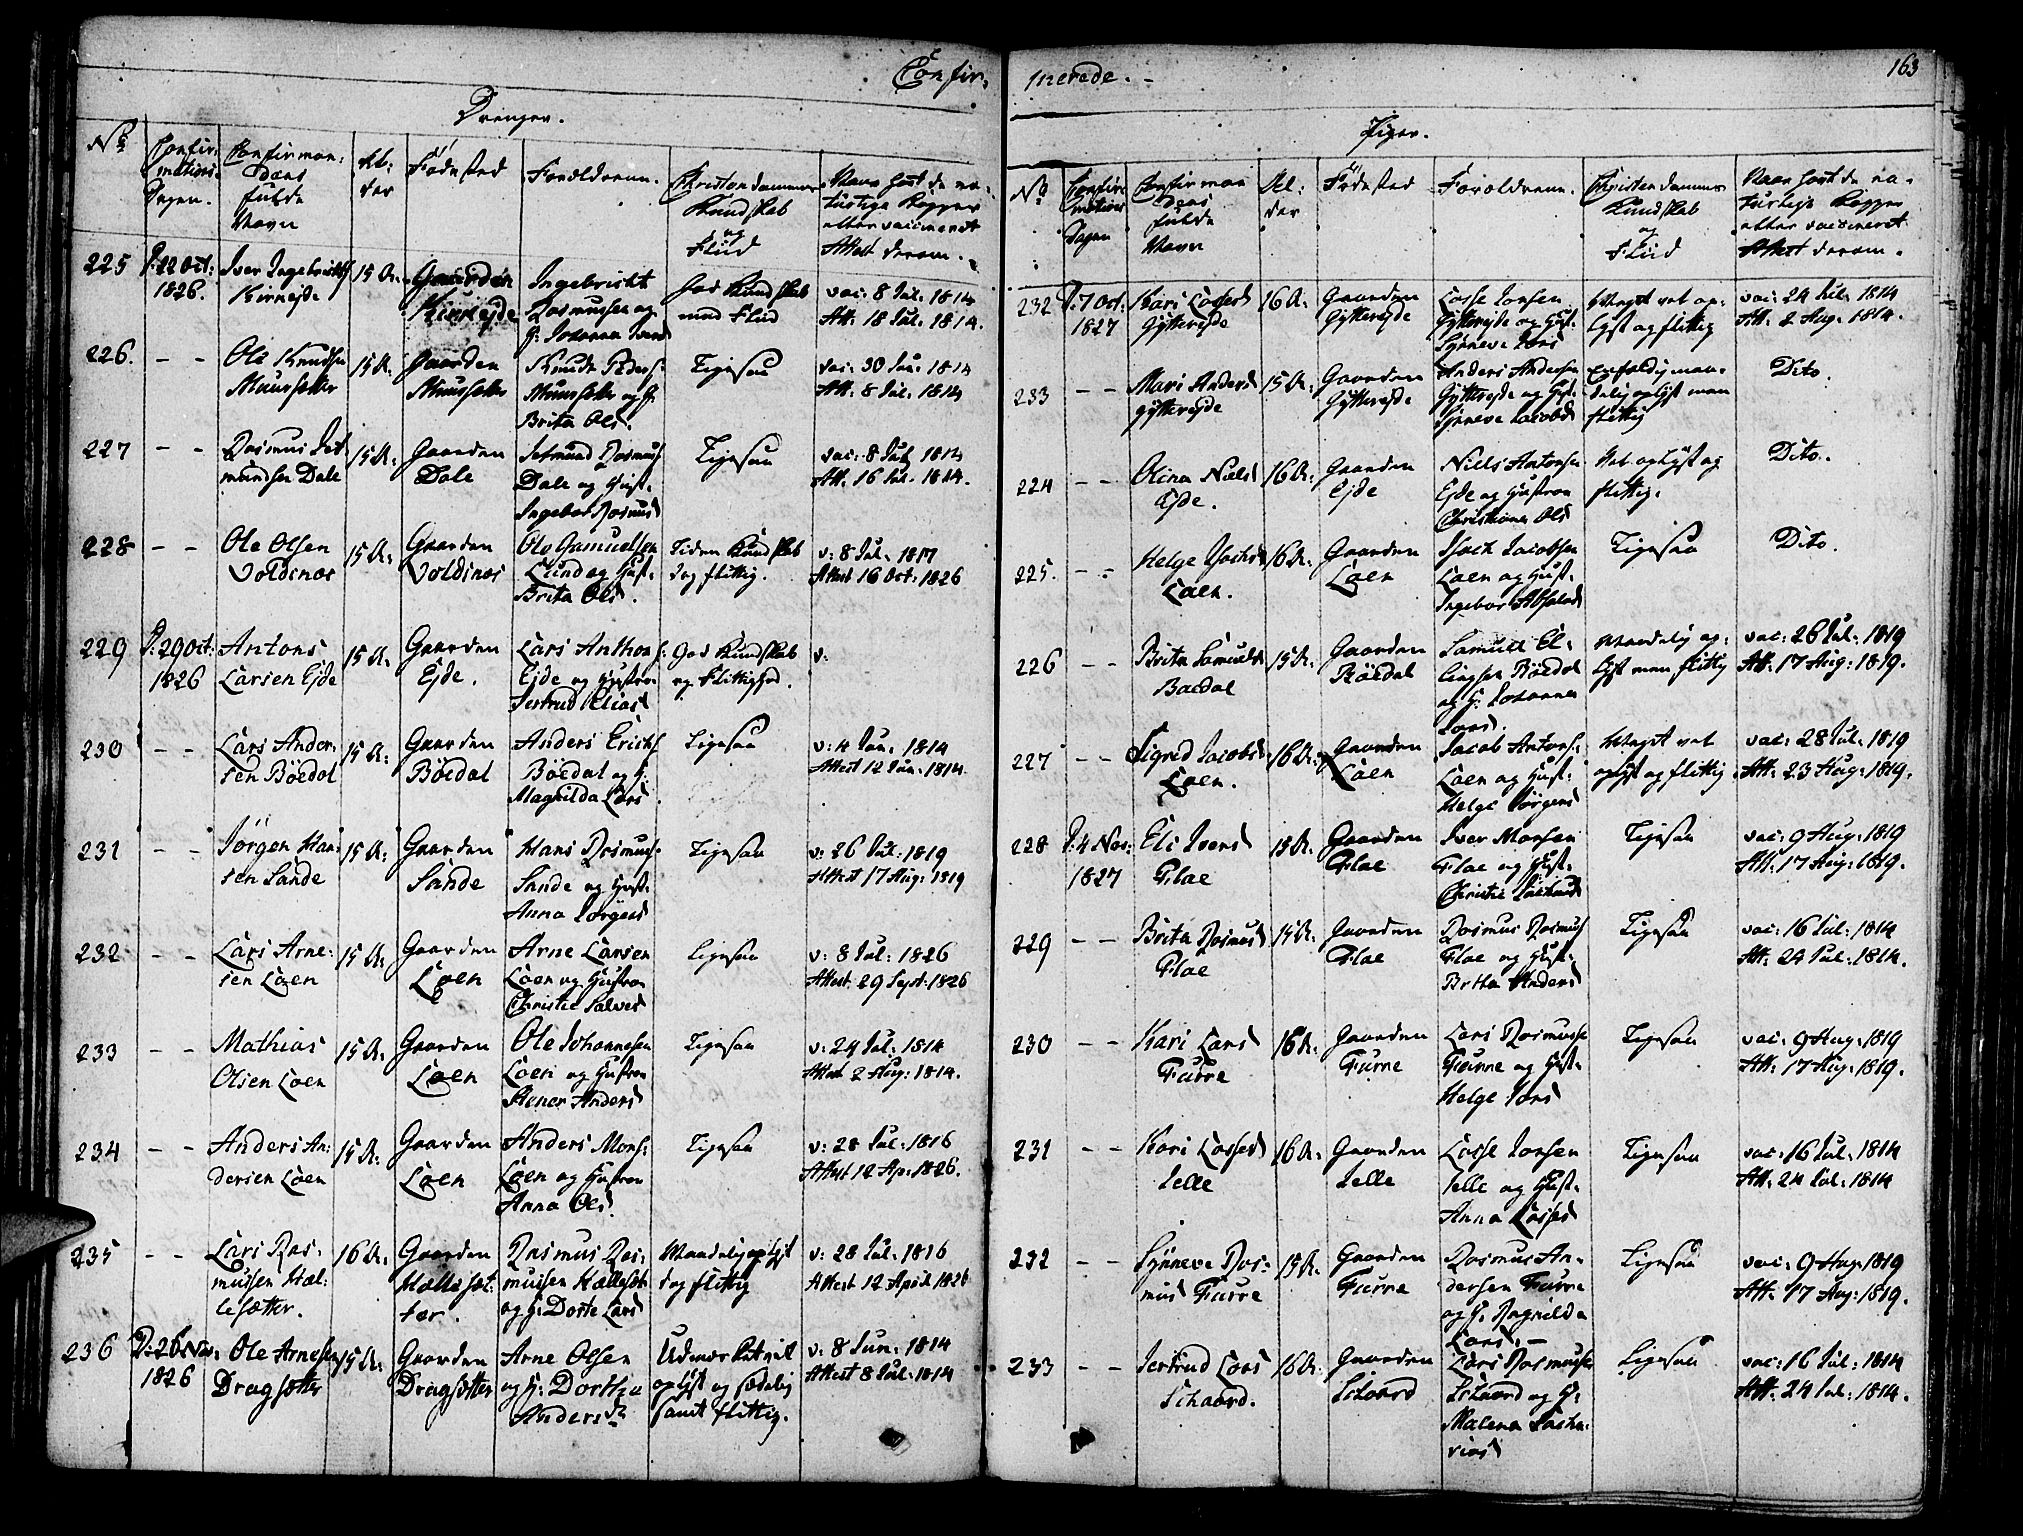 Confir-
merede. -
163
Drenger.
No
Confir-
mations
Dagen.
Confirman-
dens
fulde
Navn
Al-
der
Födested
Forældrene.
Christendoms
Kundskab
og
Fliid
Naar havt de na-
turlige Kopper
eller vaccineret
Attest derom.
225
D: 22 Oct:
1826.
Iver Ingebrictss
Kirkejde
15 A:
Gaarden
Kirkejde
Ingebricht
Rasmussen og
H: Johanna
God Kundskab
med Fliid
vac: 8 Jul: 1814
Att: 18 Jul: 1814.
226.
- -
Ole Knudsen
Muursætter
15 A:
Gaarden
Muursætter
Knudt Peders:
Muursætter og H:
Britha Ols.
Ligesaa
vac: 30 Jun: 1814
Att: 8 Jul: 1814
227
- -
Rasmus Jet-
mundsen Dale
15 A:
Gaarden
Dale
Jetmund Rasmus
Dale og Hust:
Ingebor Rasmusd
Ligesaa
vac: 8 Jul 1814
Att: 16 Jul: 1814.
228
- -
Ole Olsen
Voldsnæs
15 A:
Gaarden
Voldsnæs
Ole Samuelsen
Lund og Hust:
Brita Ols.
Liden Kundskab
dog flittig.
v: 8 Jul: 1817
Attest 16 Oct: 1826
229
D: 29 Oct:
1826
Antons
Larsen Ejde
15 A:
Gaarden
Ejde.
Lars Anthons:
Ejde og Hustroe
Jertrud Eliasd
God Kundskab
og Flittighed.
v:
230
- -
Lars Ander-
sen Böedal
15 A:
Gaarden
Böedal
Anders Erichs
Böedal og H:
Magnilda Lars.
Ligesaa
v: 4 Jun: 1814
Attest 12 Jun: 1814.
231
- -
Jörgen Han-
sen Sande
15 A:
Gaarden
Sande
Hans Rasmus:
Sande og Hust:
Anna Jörgens
Ligesaa
v: 26 Jul: 1819
Attest 17 Aug: 1819
232
- -
Lars Arne-
sen Loen
15 A:
Gaarden
Loen
Arne Larsen
Loen og Hustroe
Christie Salves
Ligesaa
v: 8 Jul: 1826
Attest 29 Sept: 1826
233
- -
Mathias
Olsen Loen
15 A:
Gaarden
Loen
Ole Johannesen
Loen og Hustroe
Anders
Ligesaa
v: 24 Jul: 1814
Attest 2 Aug: 1814.
234
- -
Anders An-
dersen Loen
15 A:
Gaarden
Loen
Anders Mons:
Loen og Hustroe
Anna Ols.
Ligesaa
v: 28 Jul: 1816
Attest 12 Ap: 1826.
235
- -
Lars Ras-
mussen Hæl-
lesætter.
16 A:
Gaarden
Hællesæt-
ter.
Rasmus Ras-
mussen Hællesæt
og H: Dorte Lars
Maadelig oplyst
dog flittig
v: 28 Jul: 1816
Attest 12 April 1826
236
D: 26 Nov:
1826
Ole Arnesen
Dragsætter
15 A:
Gaarden
Dragsætter
Arne Olsen
og H: Dorthea
Andersdr
Udmærket vel
oplyst og sædelig
samt flittig.
v: 8 Jun: 1814
Attest 8 Jul: 1814
Piger.
No
Confir-
mations
Dagen
Confirman
dens
fulde
Navn
Al-
der
Födested
Forældrene.
Christendoms
Kundskab
og
Fliid
Naar havt de na-
turlige Kopper
eller vaccineret
Attest derom.
232
D: 7 Oct:
1827
Kari Lassesd
Gytterejde
16 A:
Gaarden
Gytterejde
Lasse Jonsen
Gytterejde og Hust:
Synneve Lars
Meget vel op-
lyst og flittig
vac: 24 Jul: 1814
Att: 2 Aug: 1814.
233
- -
Mari Andersd
Gytterejde
15 A:
Gaarden
Gytterejde
Anders Andersen
Gytterejde og Hust:
Synneve Jacobsd
Enfoldig maa-
delig oplyst men
flittig
Dito.
224
- -
Olina Nielsd
Ejde.
16 A:
Gaarden
Ejde
Niels Antonsen
Ejde og Hustroe
Christiana Olsd
Vel oplyst og
flittig.
Dito.
225.
- -
Helge Isachsd
Loen.
16 A:
Gaarden
Loen
Isach Jacobsen
Loen og Hust:
Ingebor Absalonsd
Ligesaa
Dito.
226
- -
Brita Samuelsd
Boedal
15 A:
Gaarden
Böedal
Samuel El-
lingsen Böedal
og H: Johanna
Lars.
Maadelig op-
lyst men flittig
vac: 26 Jul: 1819
Att: 17 Aug: 1819.
227
- -
Sigred Jacobsd
Loen.
16 A:
Gaarden
Loen
Jacob Antons:
Loen og Hust:
Helge Jörgens
Meget vel
oplyst og flittig
vac: 28 Jul: 1819
Att: 23 Aug: 1819.
228
D: 4 Nov:
1827
Eli Iversd
Flae
15 A:
Gaarden
Flae
Iver Monsen
Flae og Hust:
Christie
Ligesaa
vac: 9 Aug: 1819
Att: 17 Aug: 1819.
229
- -
Brita Rasmusd
Flae
15 A:
Gaarden
Flae
Rasmus Rasmus
Flae og Hust:
Britha Anders
Ligesaa
vac: 16 Jul: 1814
Att: 24 Jul: 1814.
230
- -
Kari Lars
Furre
16 A:
Gaarden
Furre
Lars Rasmusse
Furre og Hust:
Helge Iars
Ligesaa
vac: 9 Aug: 1819
Att: 17 Aug: 1819.
231
- -
Kari Lassesd
Jelle
16 A:
Gaarden
Jelle
Lasse Jonsen
Jelle og Hust:
Anna Lassesd
Ligesaa
vac: 16 Jul: 1814
Att: 24 Jul: 1814
232
- -
Synneve Ras-
mus Furre
15 A:
Gaarden
Furre
Rasmus An-
dersen Furre
og H: Ragnilda
Lars. -
Ligesaa
vac: 9 Aug: 1819
Att: 17 Aug: 1819.
233
- -
Jertrud Lars
Schaard.
16 A:
Gaarden
Schaard
Lars Rasmusse
Schaard og H:
Malena Sacha-
rias
Ligesaa
vac: 16 Jul: 1814
Att: 24 Jul: 1814.